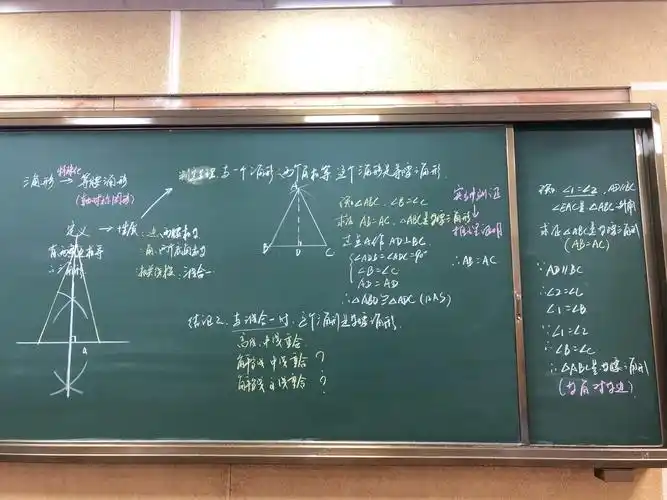 三角形 特殊化 → 等腰三角形
(轴对称图形)
定义 → 性质
边:两腰相等
角:两个底角相等
相关线段:三线合一
有两边相等
的三角形
A
判定定理 有一个三角形 两个角相等 这个三角形是等腰三角形.
A
B
D
C
△ABC, ∠B=∠C
求证 AB=AC, △ABC是等腰三角形
过点A作 AD⊥BC.
∠ADB=∠ADC=90°
∠B=∠C
AD=AD
∴△ABD≌△ADC (AAS)
∴AB=AC
实验验证
↓
推理证明
结论2 有三线合一时, 这个三角形是等腰三角形.
高线、中线重合
角平分线 中线重合 ?
角平分线 高线重合 ?
∠1=∠2, AD∥BC
∠EAC是△ABC外角
求证 △ABC是等腰三角形
(AB=AC)
∵AD∥BC
∴∠2=∠C
∠1=∠B
∵∠1=∠2
∴∠B=∠C
∴△ABC是等腰三角形
(等角对等边)